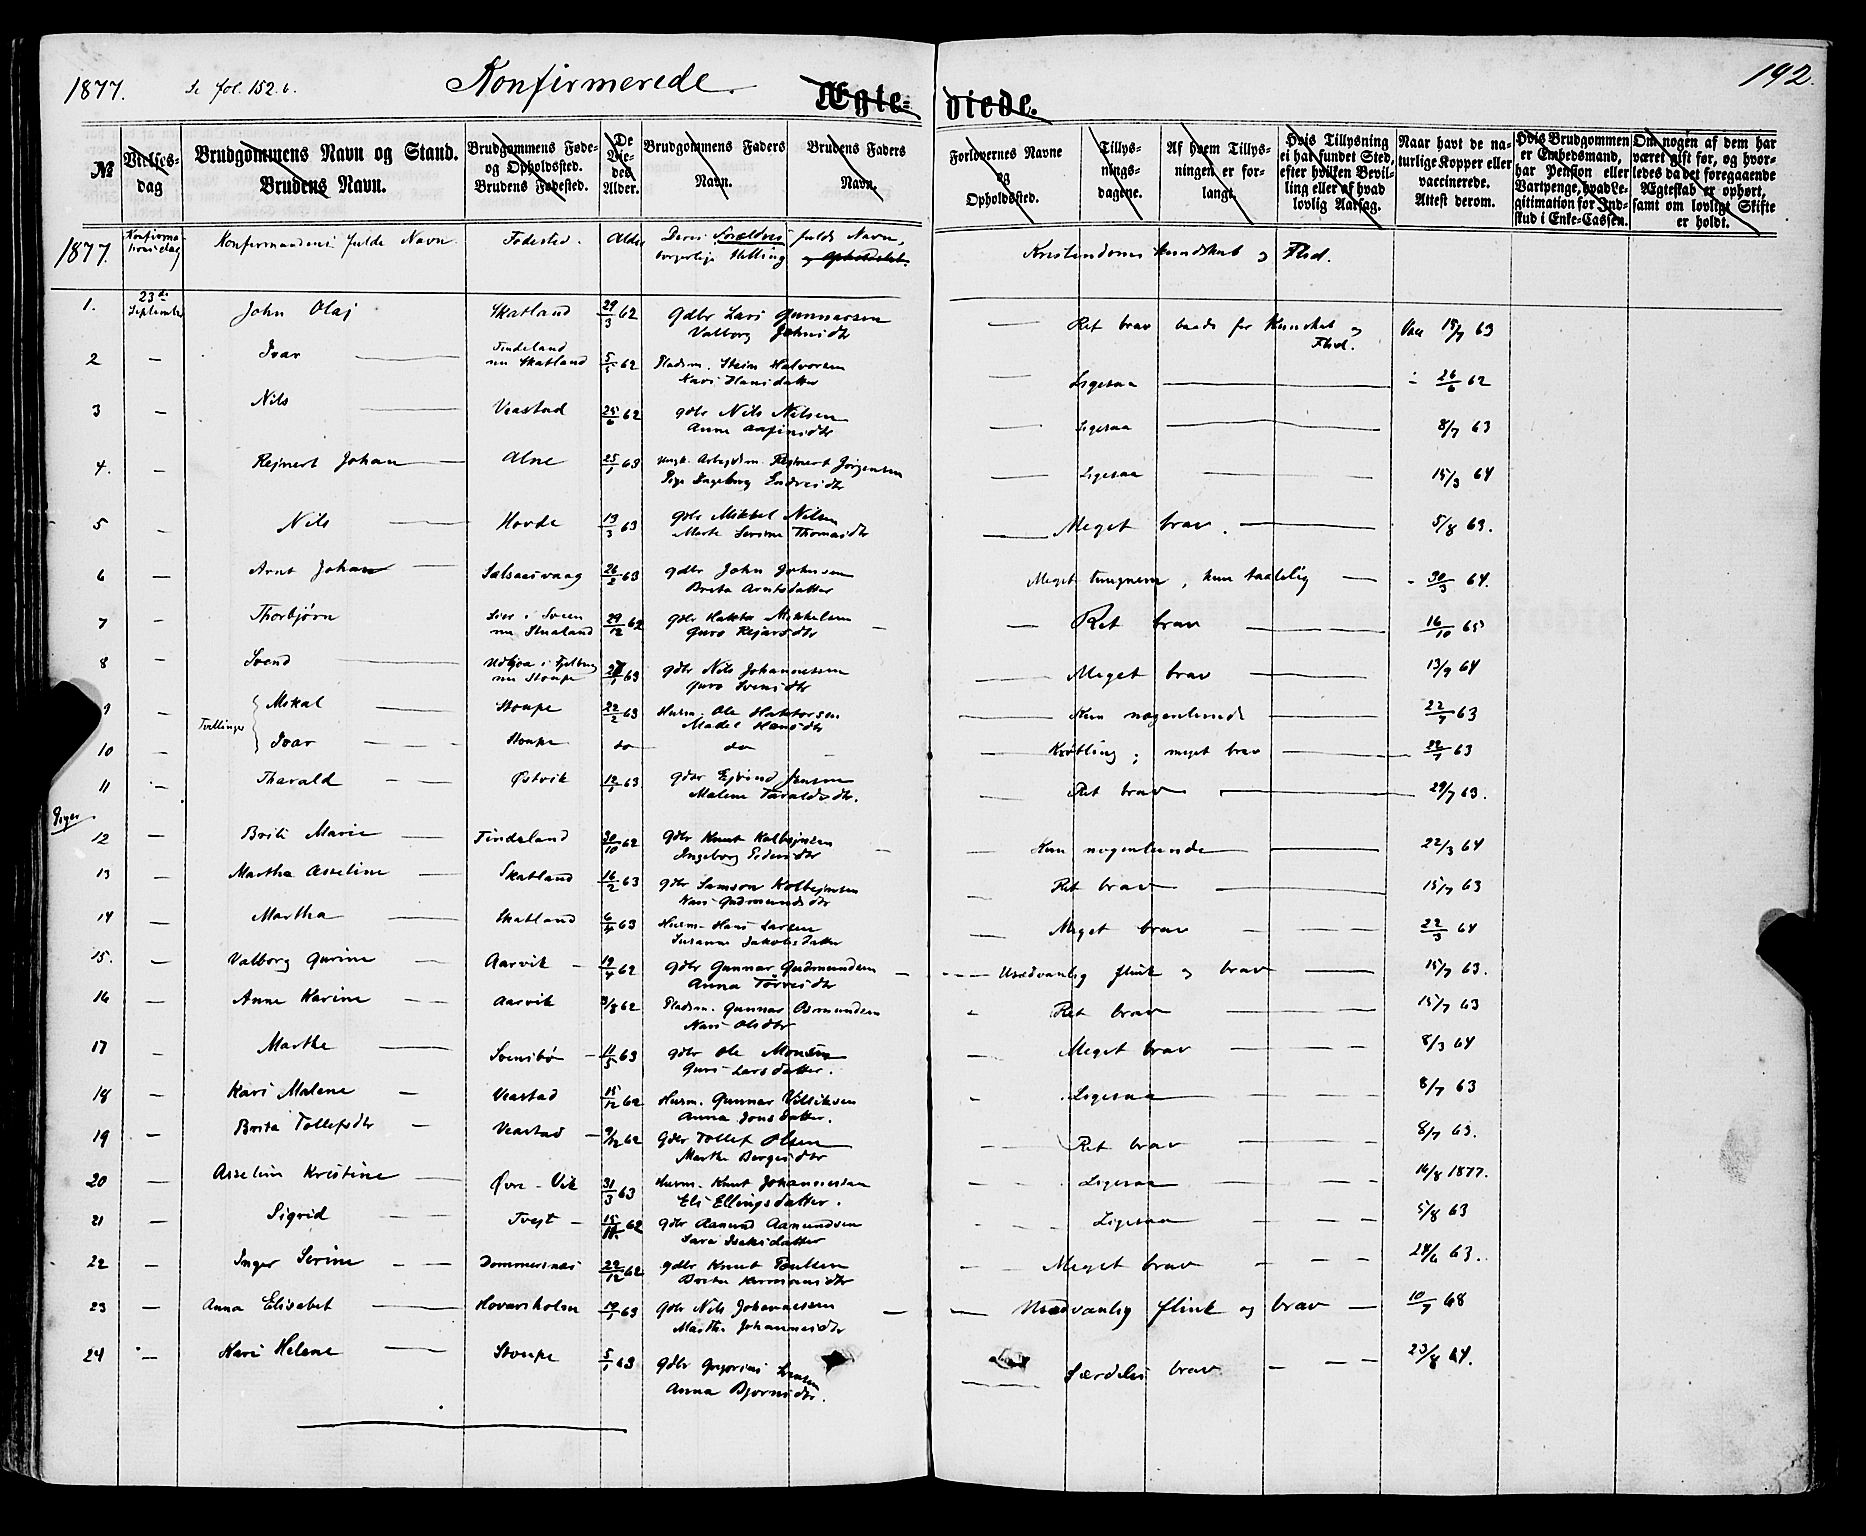 1877. Se fol. 152.b. Konfirmerede. Ægte- viede. 192.
№ Vielses-dag Brudgommens Navn og Stand. Brudens Navn. Brudgommens Føde- og Opholdssted. Brudens Fødested. De Vie-des Alder. Brudgommens Faders Navn. Brudens Faders Navn. Forlovernes Navne og Opholdssted. Tillys-nings-dagene. Af hvem Tillys-ningen er for-langt. Hvis Tillysning ei har fundet Sted, efter hvilken Bevil-ling eller af hvad lovlig Aarsag. Naar havt de na-turlige Kopper eller vaccinerede. Attest derom. Hvis Brudgommen er Embedsmand, har Pension eller Vartpenge, hvad Le-gitimation for Ind-skud i Enke-Cassen. Om nogen af dem har været gift før, og hvor-ledes da det foregaaende Ægteskab er ophørt, samt om lovligt Skifte er holdt.
1877. Konfirma-tionsdag Konfirmandens fulde Navn. Fødested. Alder Deres Forældres fulde Navn, borgerlige Stilling og Opholdssted. Kristendoms Kundskab og Flid.
1. 23de September John Olaj Skatland 29/3 62 Gdbr Lars Gunnarsen
Valborg Johnsdtr — Ret brav baade for Kundskab og Flid. Vac 15/7 63
2 — Ivar — Tindeland nu Skatland 5/5 62 Pladsm. Stein Halvorsen
Kari Hansdatter — Ligesaa — 26/6 62
3 — Nils — Veastad 25/6 62 Gdbr Nils Nilsen
Anne — Ligesaa — 8/7 63
4. — Rejnert Johan — Alne 25/1 63 Ungk. Arbejdsm. Rejnert Jørgensen
Pige Ingeborg Endresdtr — Ligesaa — 15/3 64
5 — Nils — Hovde 13/3 63 Gdbr Mikkel Nilsen
Marte Serine Thomasdtr — Meget brav. — 5/8 63.
6 — Arnt Johan — 26/2 63 Gdbr John Johnsen
Brita Arntsdatter Meget tungnem, kun taalelig — 30/3 64.
7 — Thorbjørn Lier i Sveen nu 29/12 62 Gdbr Mikkelsen
Guro — — Ret brav — 16/10 65
8 — Svend — i Fjelberg nu Stoupe 63 Gdbr Nils Johannessen
Guro Svensdtr — Meget brav — 13/9 64
9 — Tvillinger Mikal Stoupe 22/2 63 Husm. Ole
Madel Hansdtr — Kun nogenlunde — 22/7 63
10 — Ivar — Stoupe do do — Krøbling; meget brav — 22/7 63
11 — Tharald — Østvik 12/1 63 Gdbr Ejvind Jensen
Malene Taraldsdtr. — Ret brav — 29/7 63.
Piger
12 — Brita Marie — Tindeland 30/10 62 Gdbr Knut Kolbejnsen
Ingeborg Pedersdtr — Kun nogenlunde — 22/3 64
13 — Martha Asseline — Skatland 16/2 63 Gdbr Samson Kolbejnsen
Kari Gudmundsdtr — Ret brav — 15/7 63
14 — Martha — Skatland 6/4 63 Husm. Hans Larsen
Susanne Jakobsdatter — Meget brav — 22/3 64
15. — Valborg Gurine — Aarvik — 19/4 62 Gdbr Gunnar Gudmundsen
Anna — Usædvanlig flink og brav — 15/7 63.
16 — Anne Karine — Aarvik 3/8 62 Pladsm. Gunnar Asmundsen
Kari Olsdtr — Ret brav — 15/7 63
17 — Marthe — Svensbø — 11/5 63 Gdbr Ole Monsen
Guri Larsdatter. — Meget brav — 8/3 64
18 — Kari Malene — Veastad 15/12 62 Husm. Gunnar
Anna Jonsdatter. — Ligesaa — 8/7 63
19 — Brita Tollefsdtr — Veastad — 9/12 62 Gdbr Tollef Olsen
Marthe Børgesdtr — Ret brav — 8/7 63.
20 — Asselin Kristine — Øvre-Vik 31/3 63 Husm. Knut Johannessen
Eli Ellingsdatter. — Ligesaa — 16/8 1877.
21 — Sigrid — Tvejt — 62 Gdbr Aamund Aamundsen
Sara Isaksdatter — Ligesaa — 5/8 63
22 — Inger Serine — Dommersnes 22/12 62 Gdbr Knut
Brita — Meget brav — 24/6 63.
23 — Anna Elisabet — Hovarsholm 63 Gdbr Nils Johannessen
Marthe Johannesdtr — Usædvanlig flink og brav — 10/7 68
24 — Kari Helene — Stoupe 5/1 63 Gdbr Gregorius
Anna Bjørnsdtr. — Særdeles brav — 23/8 64.